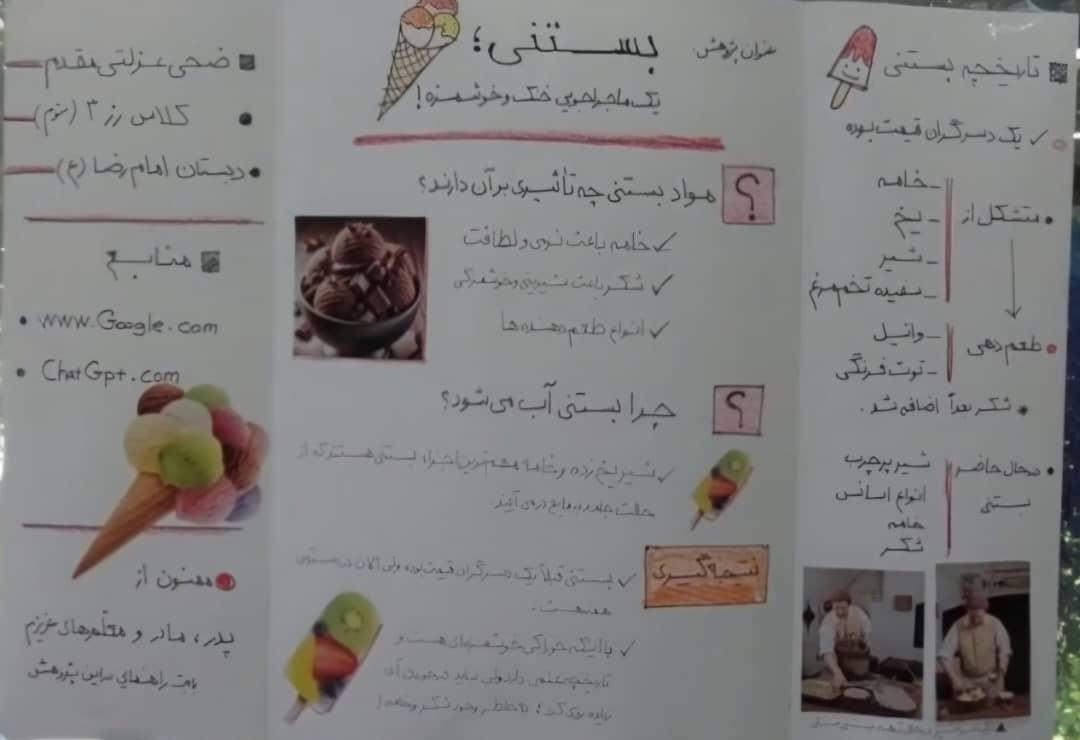 تاریخچه بستنی
✓ یک دسر گران قیمت بوده
• متشکل از
- خامه
- یخ
- شیر
- سفیده تخم مرغ
• طعم دهی
- وانیل
- توت فرنگی
• شکر بعداً اضافه شد.
• درحال حاضر بستنی
شیر پرچرب
انواع اسانس
خامه
شکر
عنوان پژوهش:
بستنی؛
یک ماجراجویی خنک و خوشمزه!
؟ مواد بستنی چه تأثیری بر آن دارند؟
✓ خامه باعث نرمی و لطافت
✓ شکر باعث شیرینی و خوشمزگی
✓ انواع طعم دهنده ها
؟ چرا بستنی آب می شود؟
✓ شیر یخ زده و خامه مهم ترین اجزاء بستنی هستند که از
حالت جامد به مایع در می آیند.
نتیجه گیری
✓ بستنی قبلاً یک دسر گران قیمت بوده ولی الان در دسترس
همه هست.
✓ با اینکه خوراکی خوشمزه ای هست و
تاریخچه علمی دارد ولی نباید در خوردن آن
زیاده روی کرد؛ به خاطر وجود شکر و خامه!
ضحی عزلتی مقدم
• کلاس رز ۳ (سوم)
• دبستان امام رضا (ع)
منابع
• www.Google.com
• ChatGpt.com
ممنون از
پدر، مادر و معلم های عزیزم
بابت راهنمایی در این پژوهش